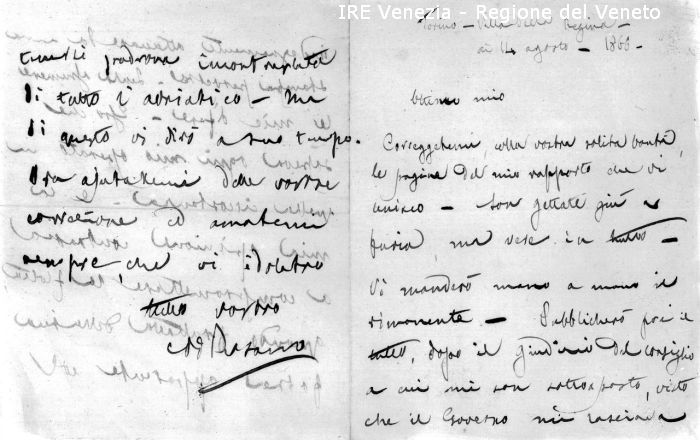 IRE Venezia - Regione del Veneto
Torino - Villa della Regina -
ai 14 agosto - 1866 -
Ottimo mio
Correggetemi, colla vostra solita bontà,
le pagine del mio rapporto che vi
invio - Son gettate giù a
furia, ma vere in tutto -
Vi manderò mano a mano il
rimanente. - Pubblicherò poi il
tutto, dopo il giudizio del consiglio
a cui mi son sottoposto, visto
che il Governo mi lasciava
tenersi padrona incontrastata
di tutto l'adriatico - Ma
di questo vi dirò a suo tempo.
Ora ajutatemi delle vostre
correzione ed amatemi
sempre, che vi idolatro
tutto vostro
CD Persano